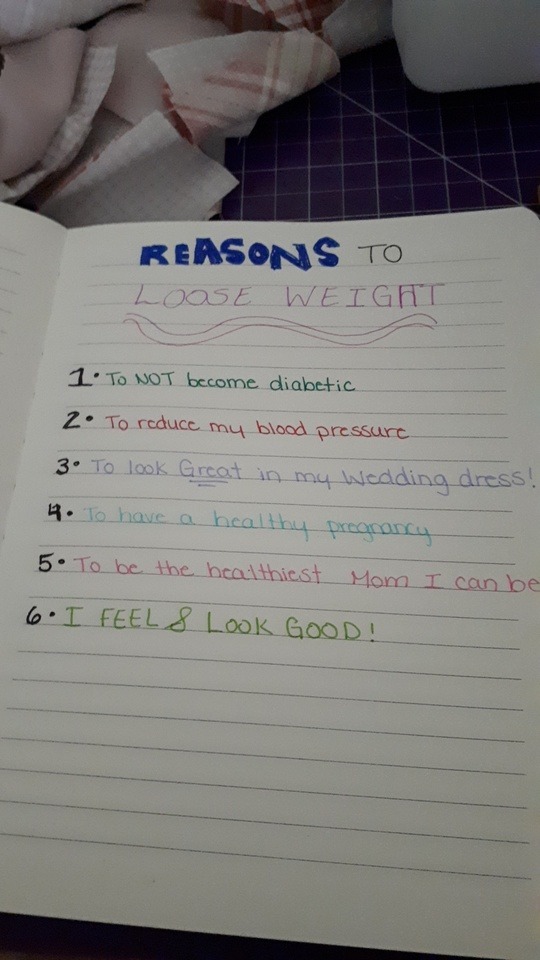 REASONS TO
LOOSE WEIGHT
1. To NOT become diabetic
2. To reduce my blood pressure
3. To look Great in my Wedding dress!
4. To have a healthy pregnancy
5. To be the healthiest Mom I can be
6. I FEEL & LOOK GOOD!